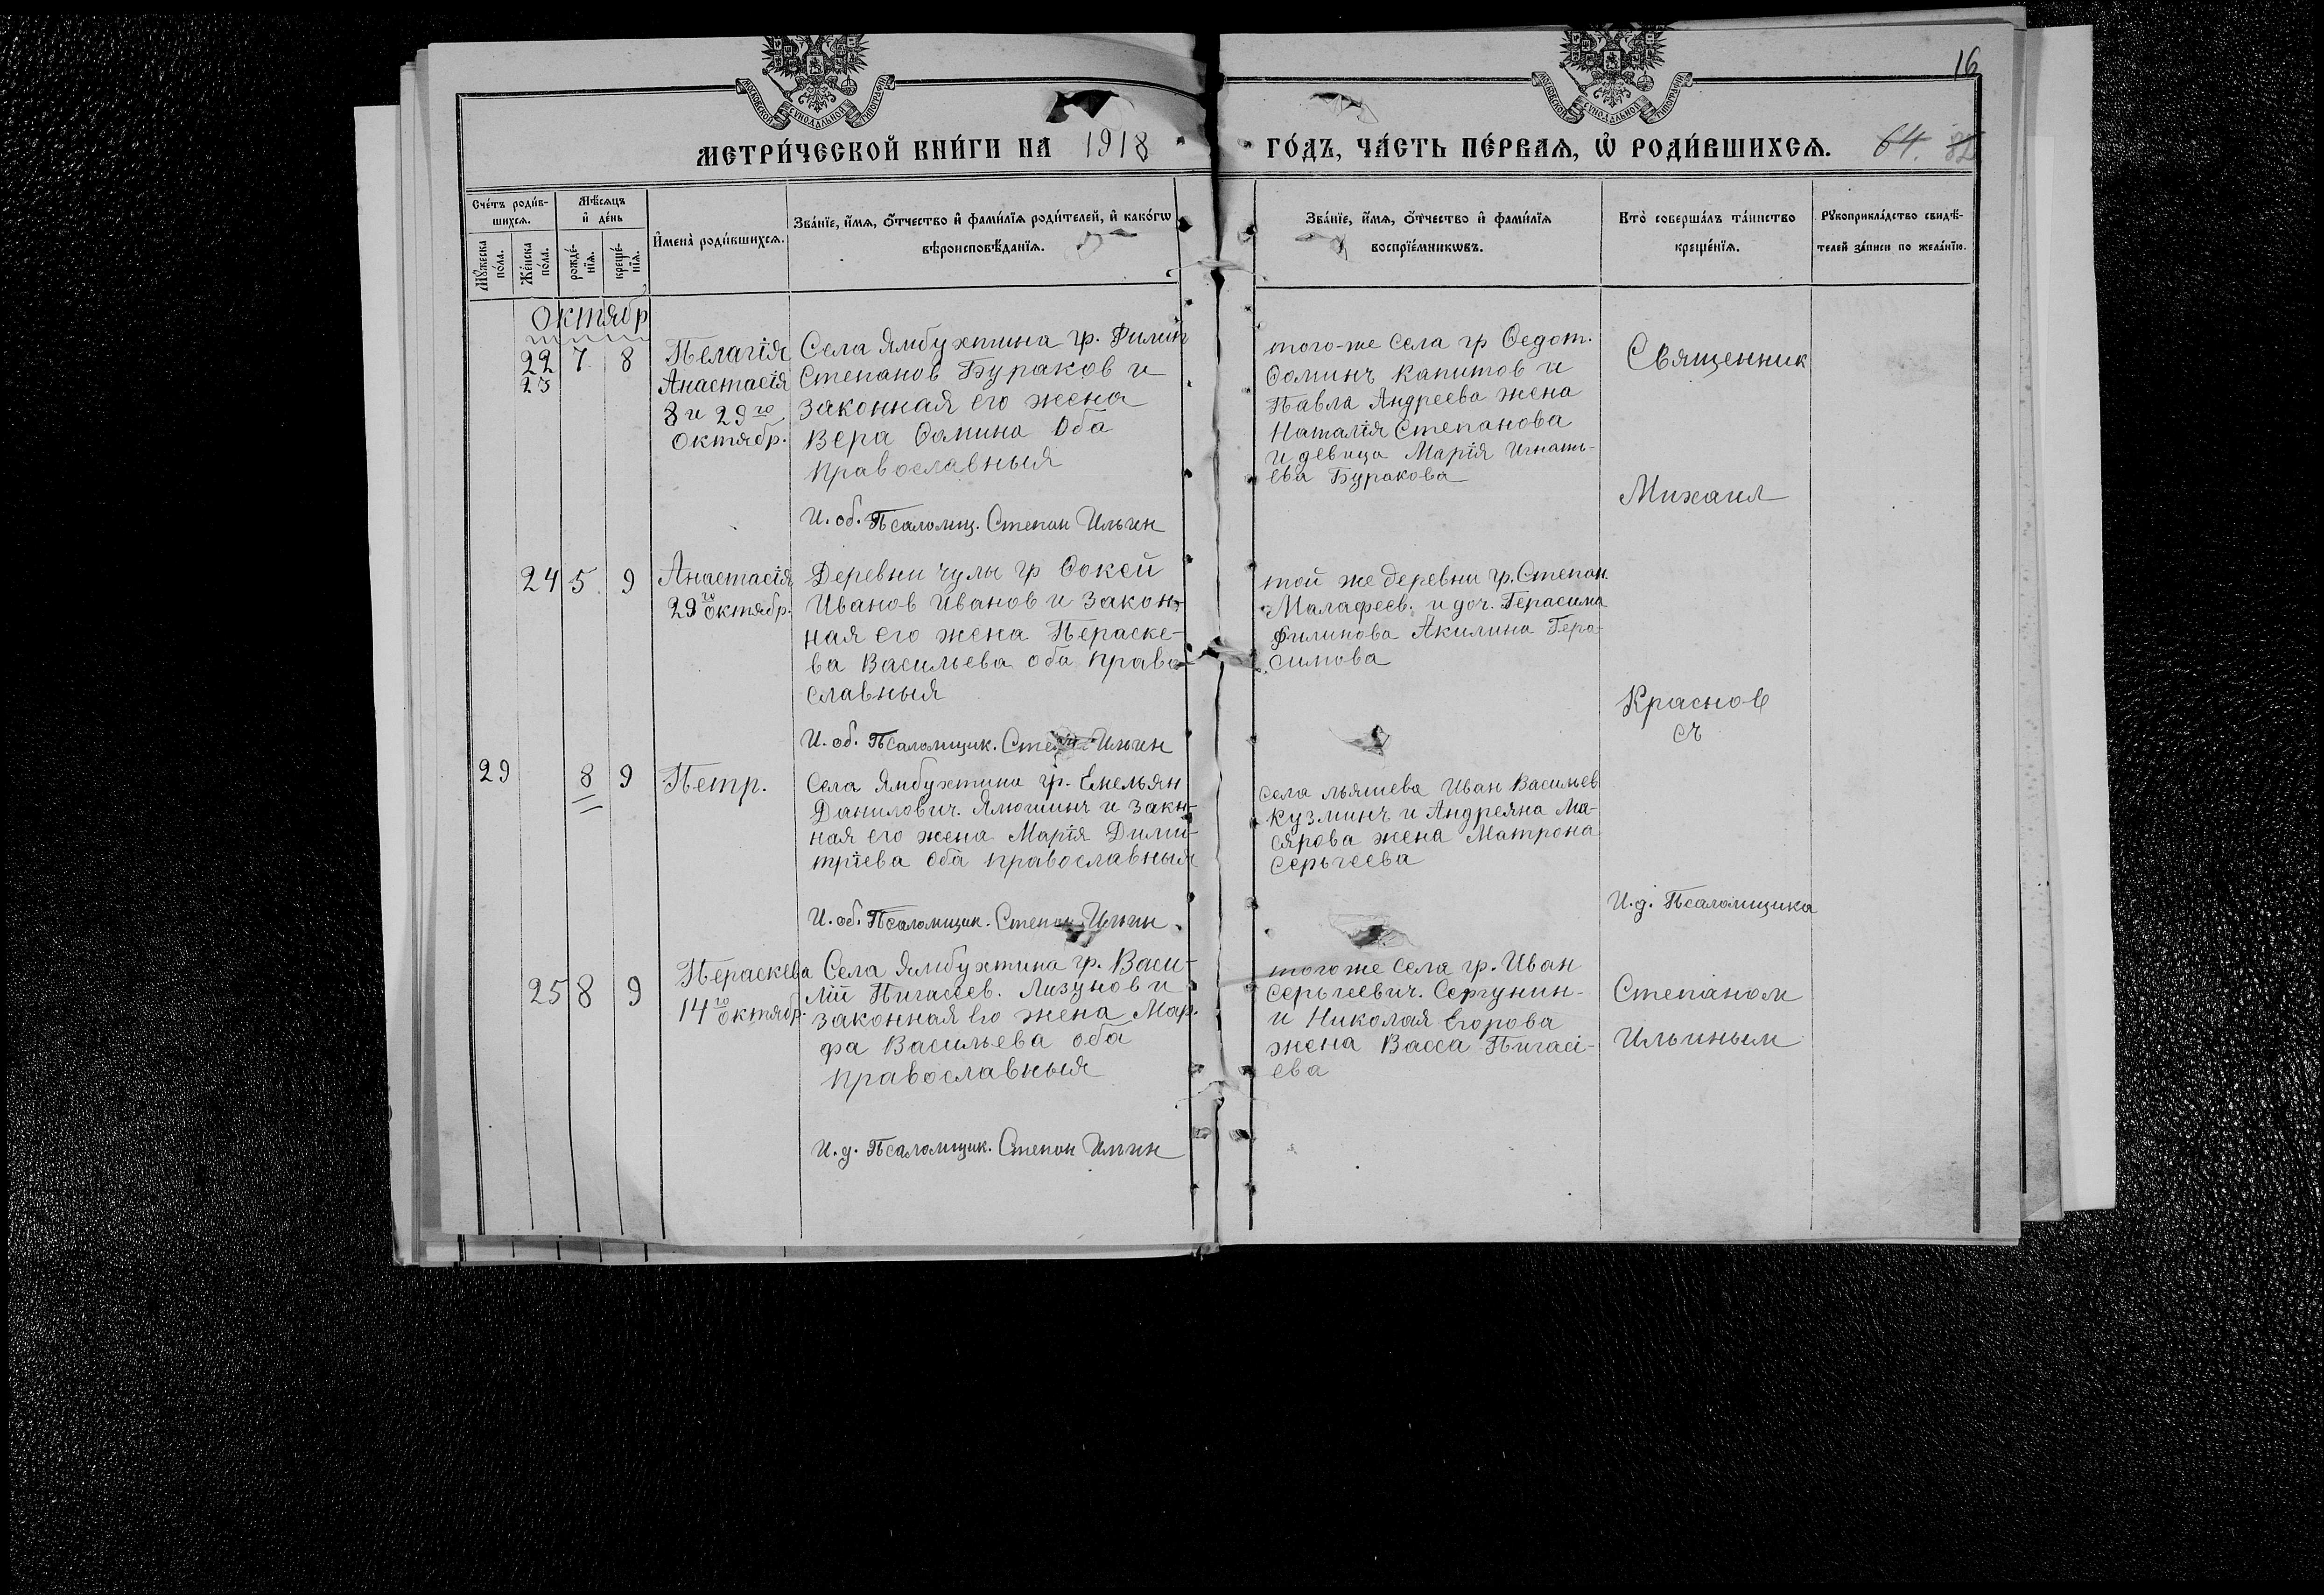 16
МОСКОВСКОЙ СѴНОДАЛЬНОЙ ТИПОГРАФІИ
МОСКОВСКОЙ СѴНОДАЛЬНОЙ ТИПОГРАФІИ
МЕТРИ́ЧЕСКОЙ КНИ́ГИ НА 1918
ГО́ДЪ, ЧА́СТЬ ПЕ́РВАЯ, Ѡ҆ РОДИ́ВШИХСЯ. 64.
Сче́тъ роди́в-
шихся.
Мꙋ́жеска по́ла.
Же́нска по́ла.
Мѣ́сяцъ
и҆ де́нь
рожде́-
нїя.
креще́-
нїя.
И҆мена̀ роди́вшихся.
Зва́нїе, и҆́мя, ѻ҆́тчество и҆ фами́лїя роди́телей, и҆ како́гѡ
вѣроисповѣ́данїя.
Зва́нїе, и҆́мя, ѻ҆́тчество и҆ фами́лїя
воспрїе́мникѡвъ.
Кто̀ соверша́лъ та́инство
креще́нїя.
Рꙋкоприкла́дство свидѣ́-
телей за́писи по жела́нїю.
Октябр
22 7 8
23
Пелагія
Анастасія
8 и 29го
Октябр.
Села Ямбухтина гр. Филип
Степанов Бураков и
законная его жена
Вера Ѳомина Оба
православныя
И. об. Псаломщ. Степан Ильин
того-же села гр Ѳедот.
Ѳоминъ Капитов и
Павла Андреева жена
Наталія Степанова
и девица Марія Игнать-
ева Буракова
Священник
Михаил
24 5 9
Анастасія
29го октябр.
Деревни Чулы гр Ѳокей
Иванов Иванов и закон-
ная его жена Пераске-
ва Васильева оба право-
славныя
И. об. Псаломщик. Сте Ильин
той же деревни гр. Степан
Малафеев. и доч. Герасима
Филипова Акилина Гера-
симова
Краснов
29 8 9
Петр.
Села Ямбухтина гр. Емельян
Данилович. Ялюшинъ и закн-
ная его жена Марія Дими-
тріева оба православныя
И. об. Псаломщик. Степан Ильин
села Льяшева Иван Васильев
Кузминъ и Андреяна Ма-
сярова жена Матрона
Серьгеева
И. д. Псаломщика
25 8 9
Пераскева
14го октябр.
Села Ямбухтина гр. Васи-
лій Пигасеев. Лизунов и
законная его жена Мар-
фа Васильева оба
православныя
И. д. Псаломщик. Степан Ильин
того же села гр. Иван
Серьгеевич. Сергунин-
и Николая Егорова
жена Васса Пигасі-
ева
Степаном
Ильиным